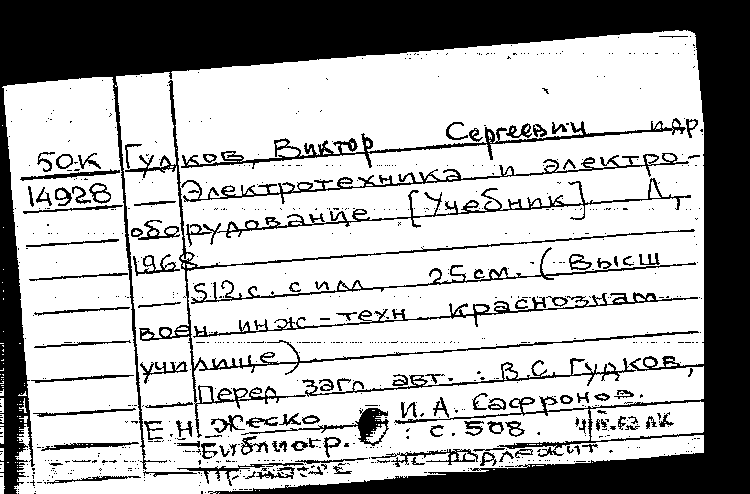 50.К Гудков, Виктор Сергеевич и др.
14928 Электротехника и электро-
оборудование [Учебник]. Л,
1968
512 с. с илл. 25 см. (Высш
воен. инж-техн краснознам
училище)
Перед загл авт.: В.С. Гудков,
Е.Н. Жеско, И.А. Сафронов.
Библиогр.: с. 508.
не подлежит.